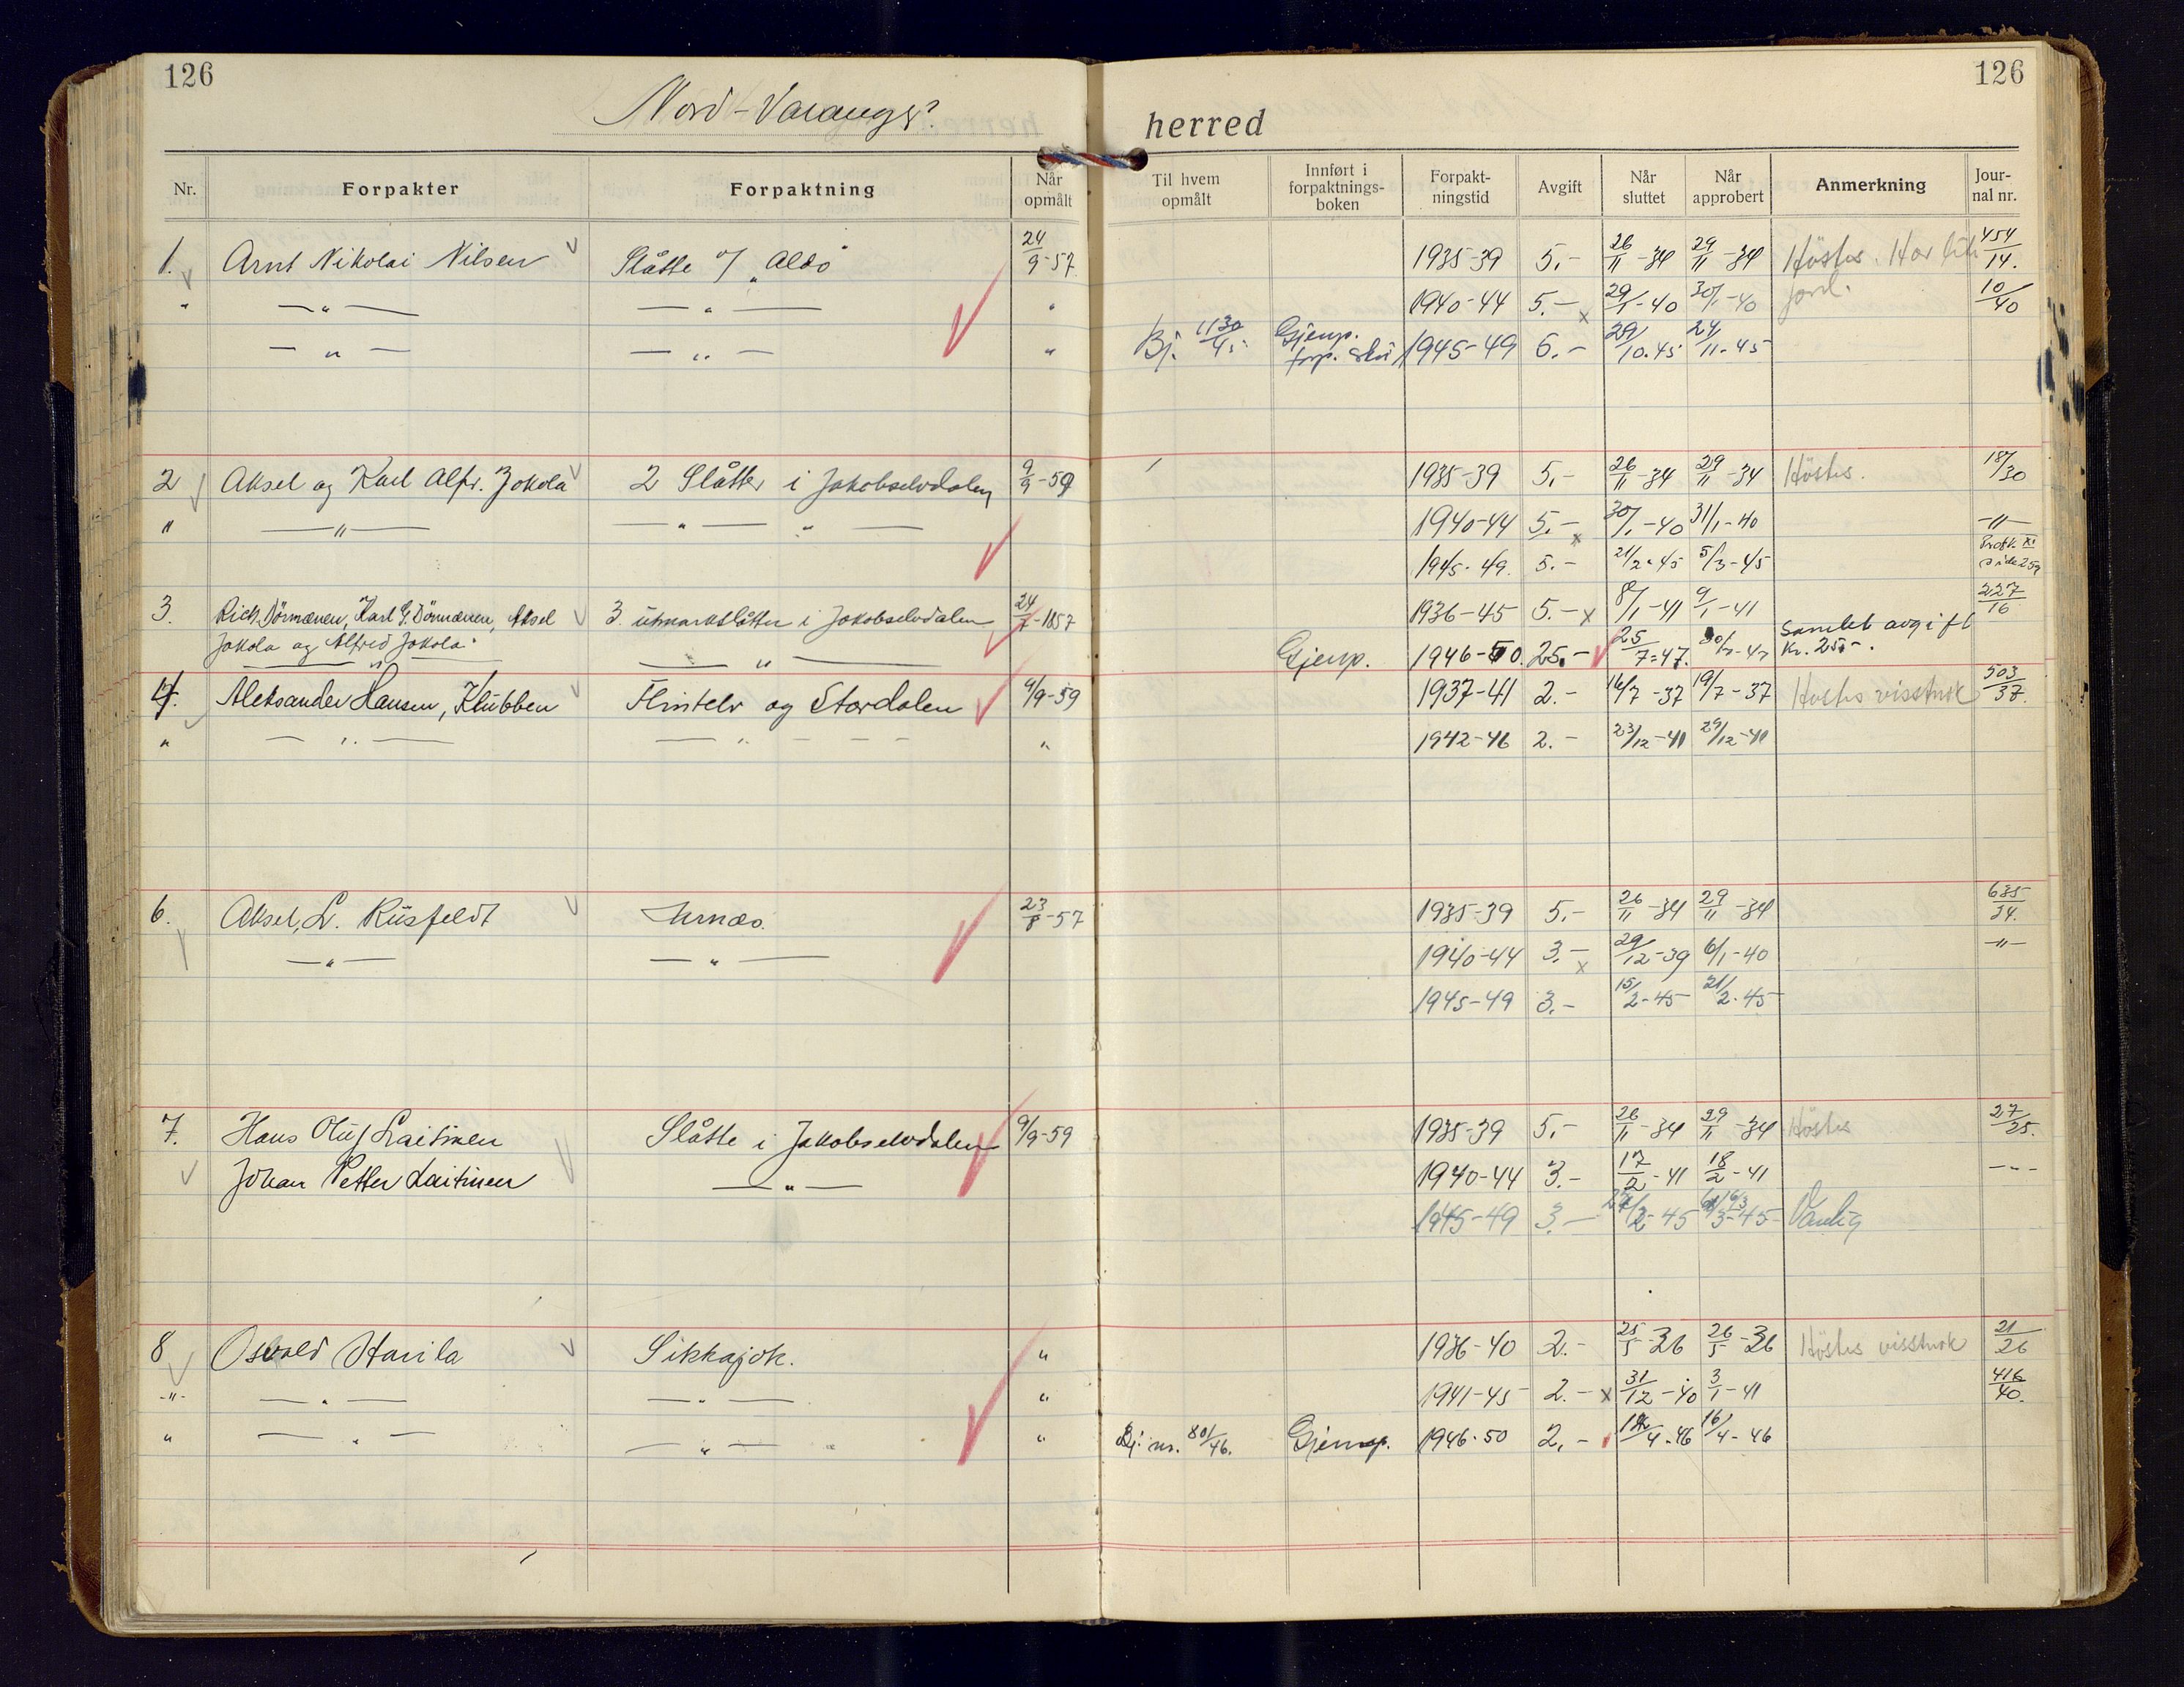 126
126
Nord-Varanger
herred
Nr. Forpakter Forpaktning Når opmålt Til hvem opmålt Innført i forpaktnings-boken Forpakt-ningstid Avgift Når sluttet Når approbert Anmerkning Jour-nal nr.
1. Arnt Nikolai Nilsen Slåtte 24/9-57 1935-39 5.- 26/11-34 29/11-34 Höstes. Har 454/14.
" —"— —"— " 1940-44 5.- x 29/1-40 30/1-40 jord. 10/40
—"— —"— " Bj. 1130/45 Gjenp. forp. 1945-49 6.- 29/10.45 24/11-45
2 Aksel og Karl Alfr. Jokola 2 Slåtter i Jakobselvdalen 9/9-59 1935-39 5.- 26/11-34 29/11-34 Höstes. 187/30
" —"— —"— " — 1940-44 5.- x 30/1-40 31/1-40 —"—
1945-49. 5.- 21/2-45 5/3-45 Protk. XI side 259
3. Rich. Dörmænen, Karl G. Dörmænen, Aksel 3 utmarkslåtter i Jakobselvdalen 24/7-1857 1936-45 5.- x 8/1-41 9/1-41 227/16
Jokola og Alfred Jokola. Samlet avgift
—"— —"— Gjenp. 1946-50. 25.- 25/7-47. 30/7-47 kr. 25.-.
4. Aleksander Hansen, Klubben Flintelv og Stordalen 9/9-59 1937-41 2.- 16/7-37 19/7-37 Höstes visstnok 503/37.
" —"— —"— " 1942-46 2.- 23/12-41 29/12-41
6. Aksel, L. Rüsfeldt Urnæs. 23/8-57 1935-39 5.- 26/11-34 29/11-34 635/34.
—"— —"— 1940-44 3.- x 29/12-39 6/1-40 —"—
1945-49 3.- 15/2-45 21/2-45
7. Hans Oluf Laitinen Slåtte i Jakobselvdalen 9/9-59 1935-39 5.- 26/11-34 29/11-34 Höstes 27/25.
Johan Petter Laitinen —"— 1940-44 3.- 17/2-41 18/2-41 —"—
1945-49 3.- /2-45 /3-45 Vanlig
8 Osvald Havila Sikkajok. " 1936-40 2.- 25/5-36 26/5-36 Höstes visstnok 21/26
-"- —"— —"— " 1941-45 2.- x 31/12-40 3/1-41 416/40.
" —"— —"— " Bj. nr. 801/46. Gjenp. 1946-50 2.- /4-46 16/4-46